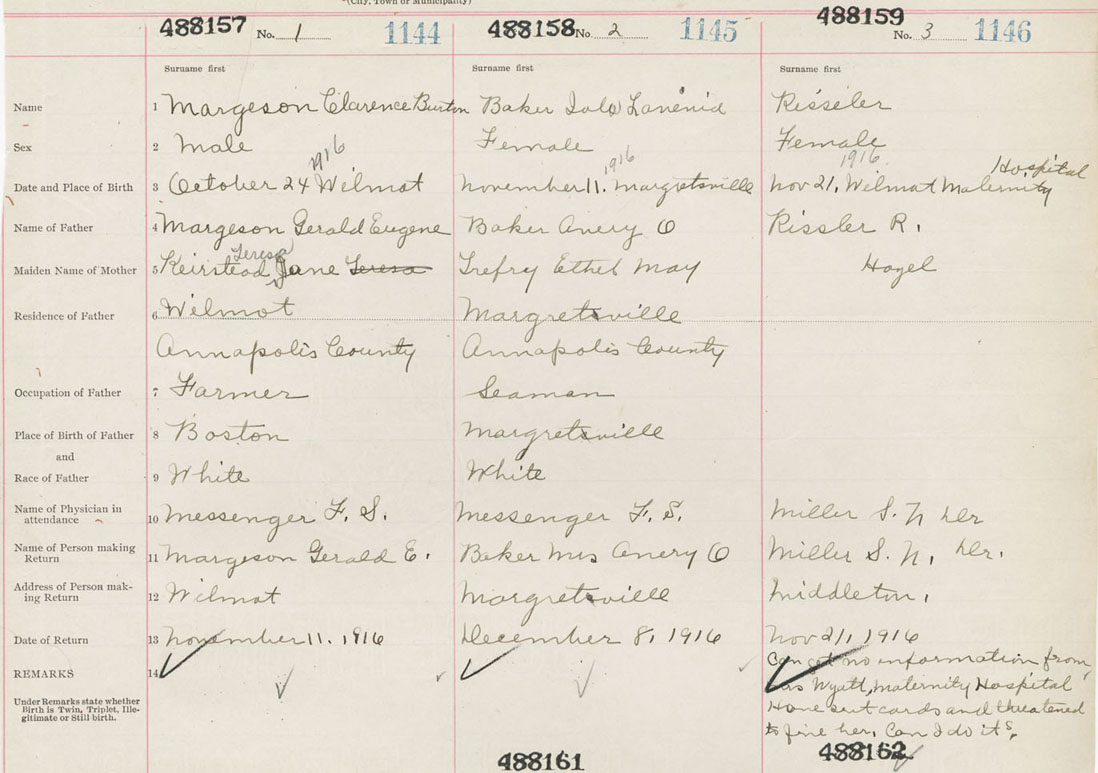 (City, Town or Municipality)
488157 No. 1 1144 488158 No. 2 1145 488159 No. 3 1146
Surname first Surname first Surname first
Name 1 Margeson Clarence Burton Baker Lavenia Risseler
Sex 2 Male Female Female
1916 1916 1916 Hospital
Date and Place of Birth 3 October 24 Wilmot November 11. Margretsville Nov 21, Wilmot Maternity
Name of Father 4 Margeson Gerald Eugene Baker Avery O Rissler R.
Teresa
Maiden Name of Mother 5 Keirstead Jane Teresa Trefry Ethel May Hazel
Residence of Father 6 Wilmot Margretsville
Annapolis County Annapolis County
Occupation of Father 7 Farmer Seaman
Place of Birth of Father 8 Boston Margretsville
and
Race of Father 9 White White
Name of Physician in
attendance 10 Messenger F. S. Messenger F. S. Miller S. N Dr
Name of Person making
Return 11 Margeson Gerald E. Baker Mrs Avery O Miller S. N. Dr.
Address of Person mak-
ing Return 12 Wilmot Margretsville Middleton.
Date of Return 13 November 11. 1916 December 8, 1916 Nov 21, 1916
REMARKS 14 Can get no information from
Under Remarks state whether
Birth is Twin, Triplet, Ille-
gitimate or Still birth.
Mrs Wyatt, Maternity Hospital
Have sent cards and threatened
to fine her. Can I do it?
488161 488162